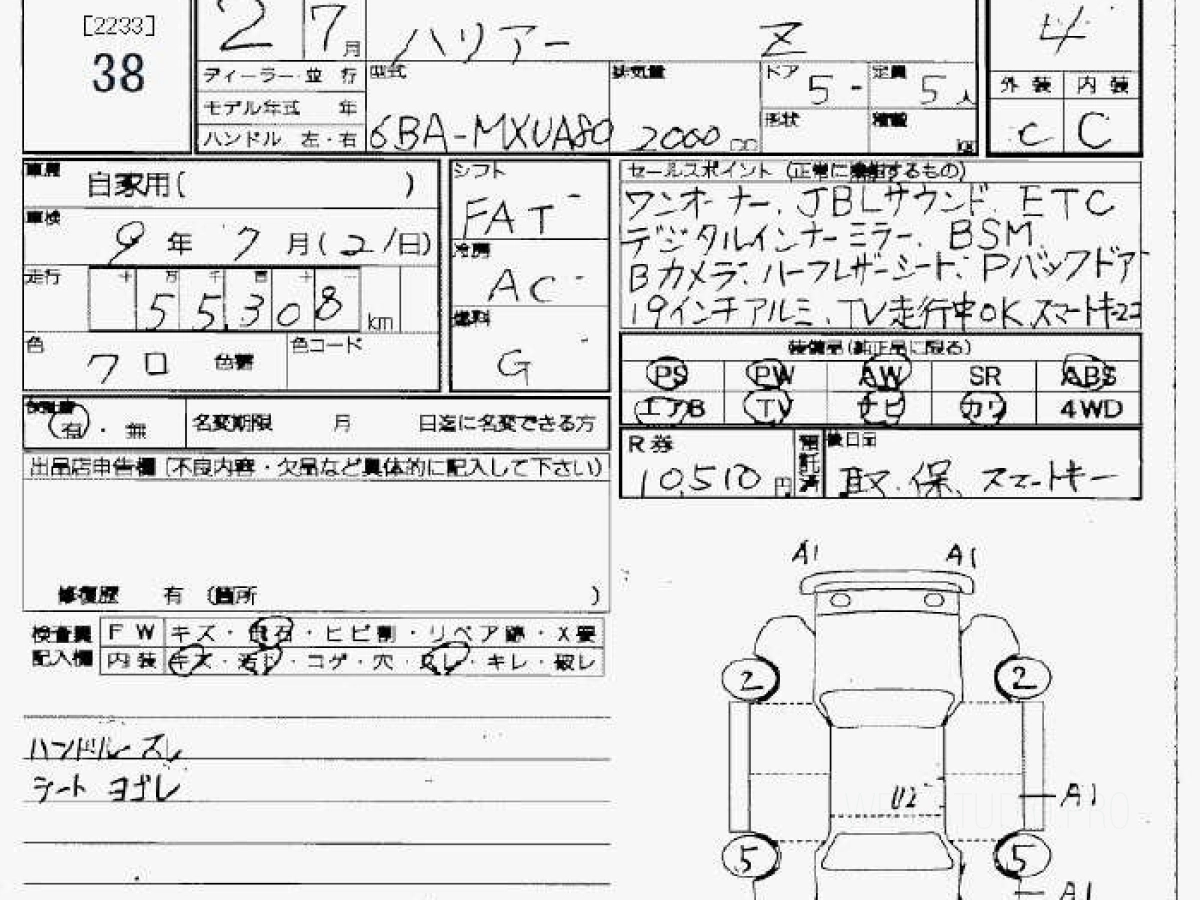 [2233]
38
2 7月 ハリアー Z 4
ディーラー・並 行 型式 排気量 ドア 5 - 定員 5人
モデル年式 年
ハンドル 左・右 6BA-MXUA80 2000 cc 形状 積載 kg
外装 内装
C C
車歴 自家用( )
車検 9年 7月(21日)
走行 十 万 千 百 十 一
55,308 km
色 クロ 色替 色コード
シフト
FAT
冷房
AC
燃料
G
セールスポイント (正常に機能するもの)
ワンオーナー、JBLサウンド、ETC
デジタルインナーミラー、BSM
Bカメラ、ハーフレザーシート、Pバックドア
19インチアルミ、TV走行中OK スマートキー2コ
装備品(純正品に限る)
PS PW AW SR ABS
エアB TV ナビ カワ 4WD
保証書
有・無 名変期限 月 日迄に名変できる方
R券 10,510円 預託済 後日品 取、保、スマートキー
出品店申告欄(不良内容・欠品など具体的に記入して下さい)
修復歴 有 (箇所 )
検査員 FW キズ・飛石・ヒビ割・リペア跡・X要
記入欄 内装 キズ・汚れ・コゲ・穴・スレ・キレ・破レ
ハンドル スレ
シート ヨゴレ
A1 A1
2 2
U2 A1
5 5
A1